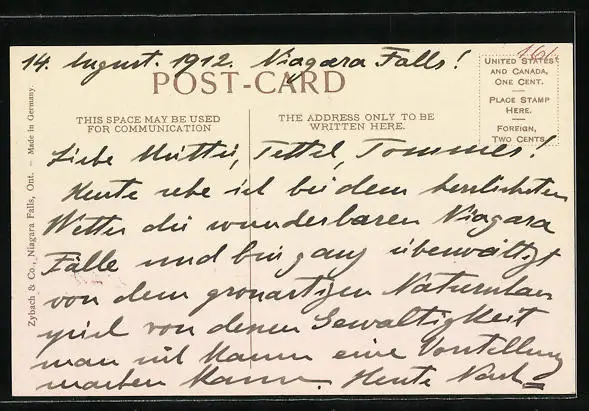 14. August. 1912. Niagara Falls!
POST-CARD
THIS SPACE MAY BE USED
FOR COMMUNICATION
THE ADDRESS ONLY TO BE
WRITTEN HERE.
UNITED STATES
AND CANADA,
ONE CENT.
PLACE STAMP
HERE.
FOREIGN,
TWO CENTS.
Zybach & Co., Niagara Falls, Ont. – Made in Germany.
Liebe Mutti, Tettel, Tommes!
Heute sehe ich bei dem herrlichsten
Wetter die wunderbaren Niagara
Fälle und bin ganz überwältigt
von dem großartigen Naturschau
spiel von dessen Gewaltigkeit
man sich kaum eine Vorstellung
machen kann. Heute Nach=